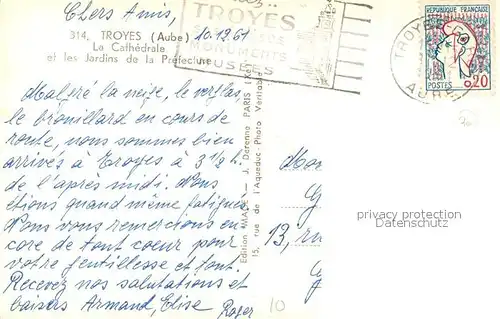 Chers Amis,
314. TROYES (Aube) 10.12.61
La Cathédrale
et les Jardins de la Préfecture
TROYES
MONUMENTS
MUSÉES
RÉPUBLIQUE FRANÇAISE
POSTES 0,20
TROYES
AUBE
Malgré la neige, le verglas,
le brouillard en cours de
route, nous sommes bien
arrivés à Troyes à 3 1/2 h.
de l'après midi. Nous
étions quand même fatigués
Nous vous remercions en-
core de tout coeur pour
votre gentillesse et tout.
Recevez nos salutations et
baisers Armand, Elise
Roger
Edition MAGE - J. Derenne PARIS
15, rue de l'Aqueduc - Photo Véritable
13, ru
privacy protection
Datenschutz
10